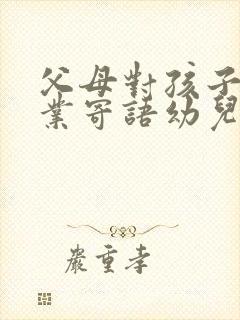 父母對孩子
業寄語幼兒
嚴重孝